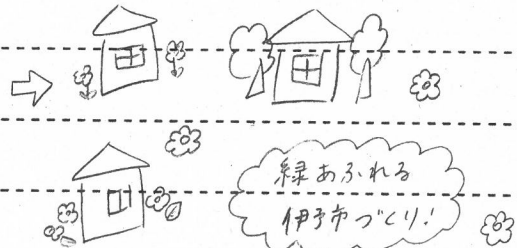 緑あふれる
伊予市づくり！